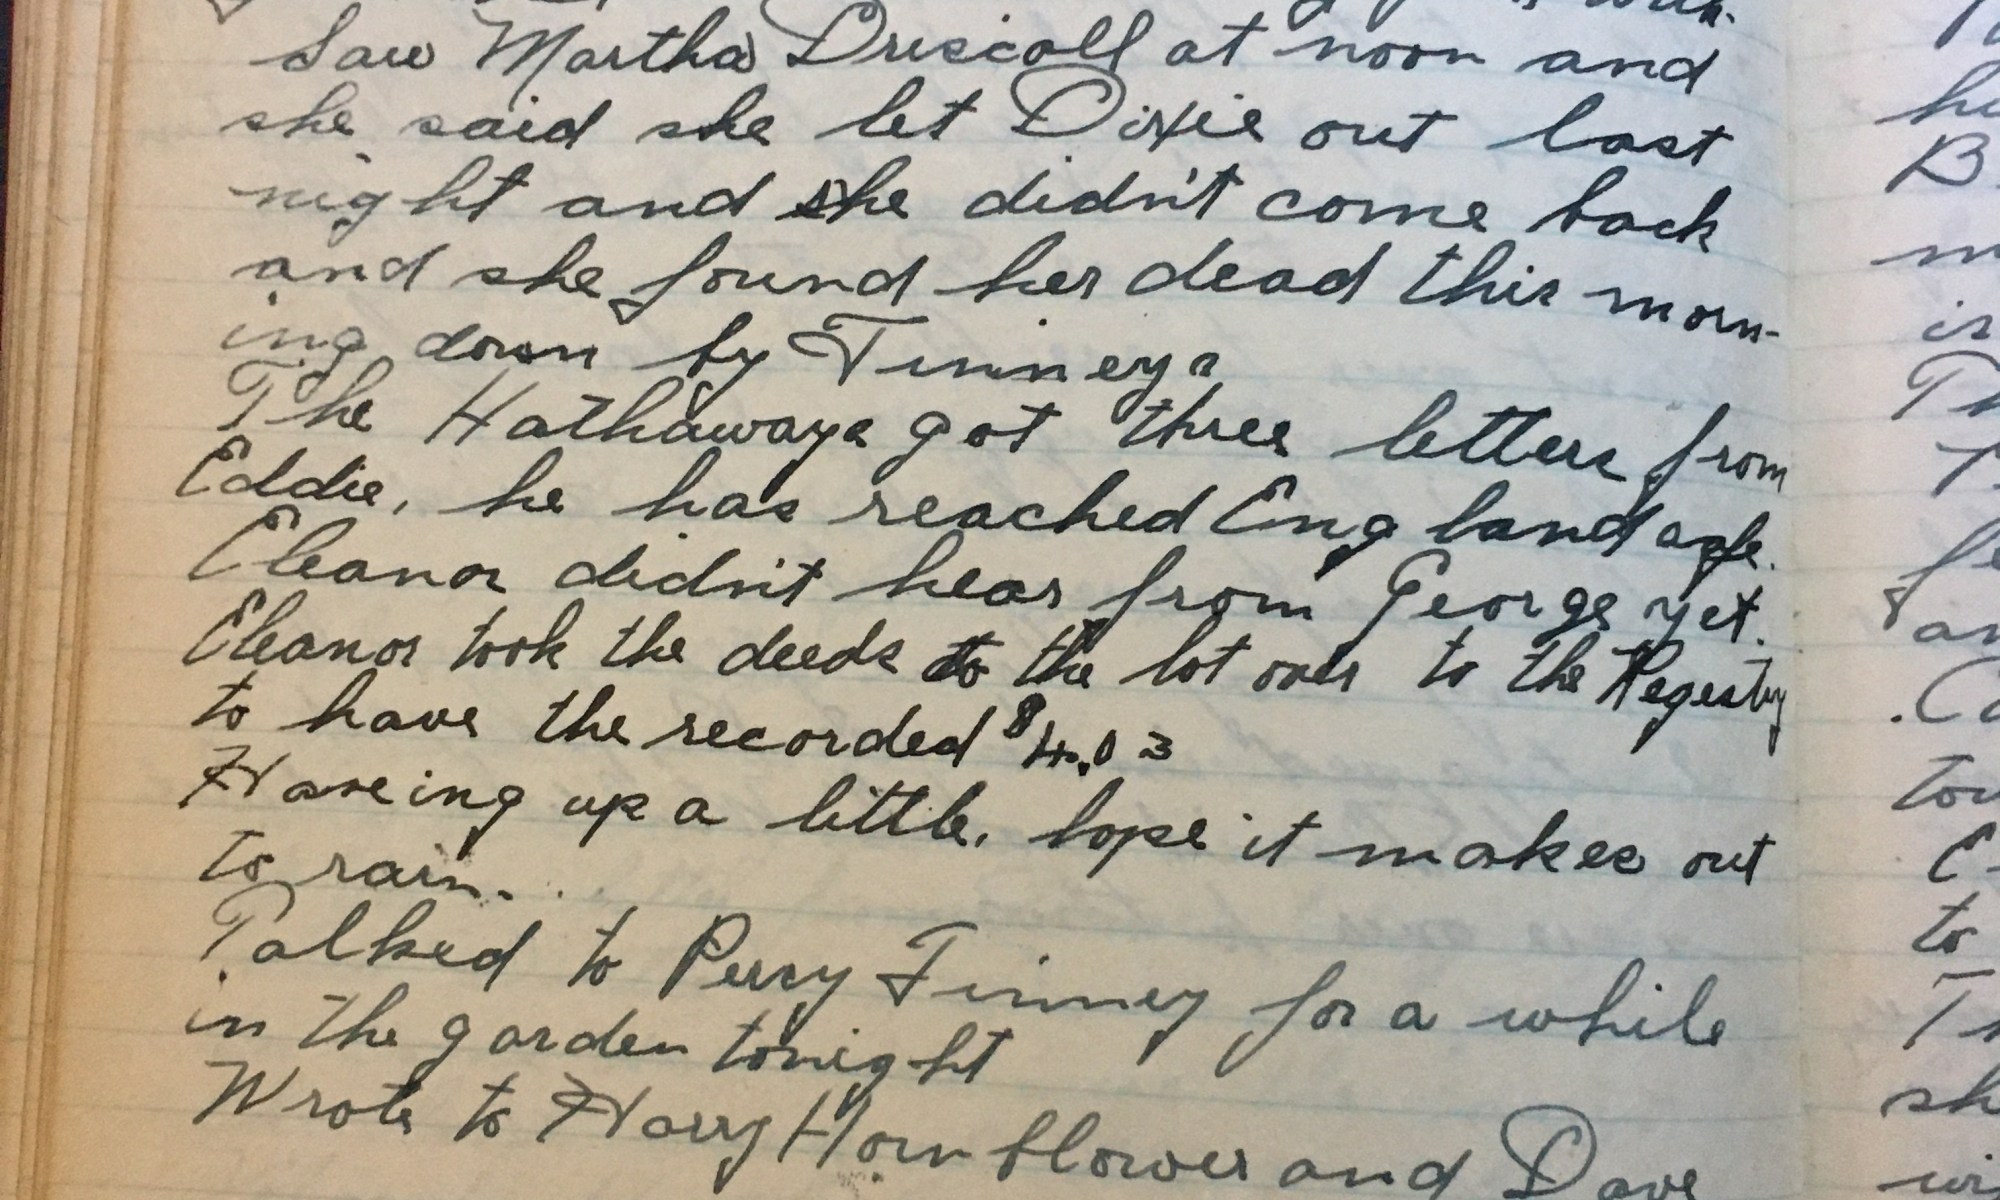 Saw Martha Driscoll at noon and
she said she let Dixie out last
night and she didn't come back
and she found her dead this morn-
ing down by Finneys
The Hathaways got three letters from
Eddie, he has reached England safe.
Eleanor didn't hear from George yet.
Eleanor took the deeds to the lot over to the Regestry
to have the recorded $4.03
Haseing up a little, hope it makes out
to rain.
Talked to Percy Finney for a while
in the garden tonight
Wrote to Harry Hornblower and Dave